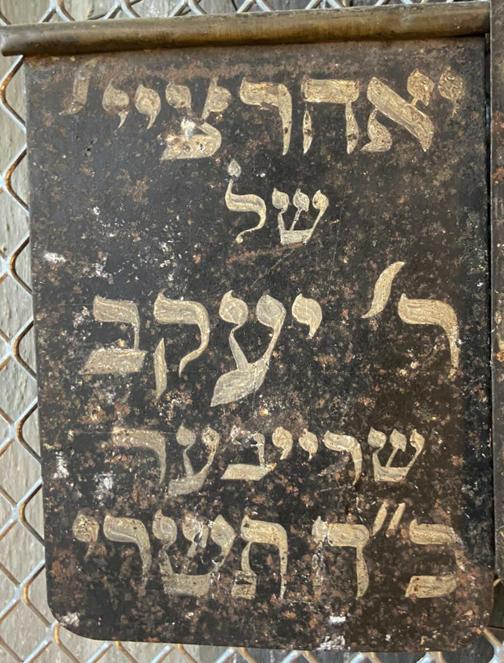 יאהרציי'
של
ר' יעקב
שרייבער
כ"ד תשרי